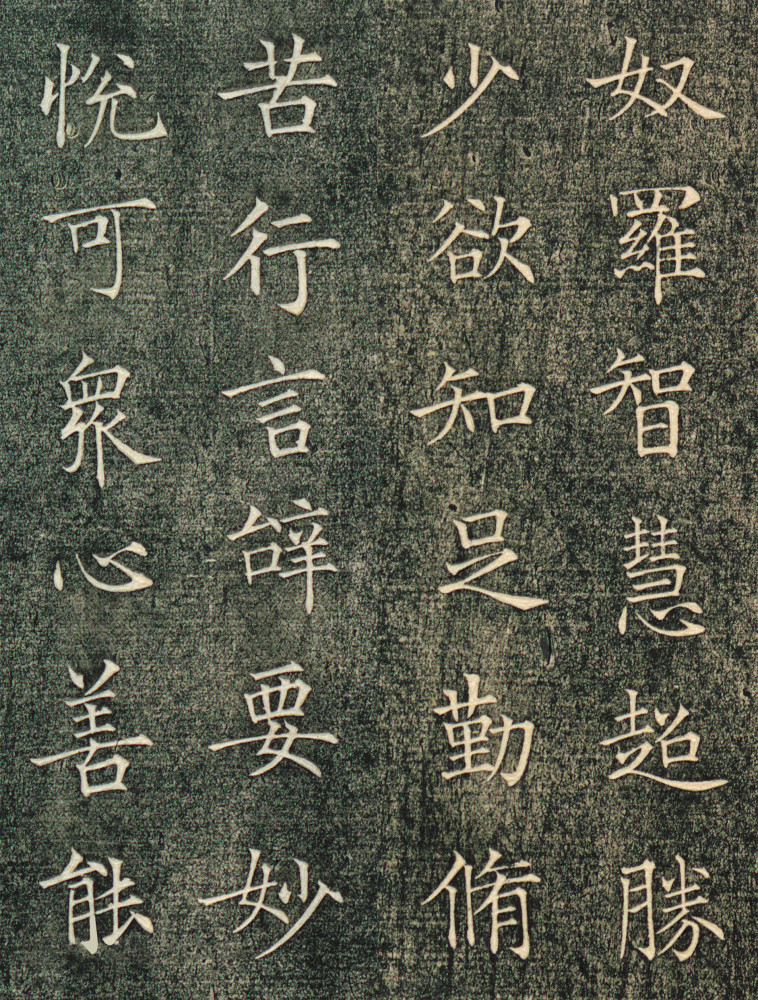 奴羅智慧超勝
少欲知足勤脩
苦行言辞要妙
悅可衆心善能